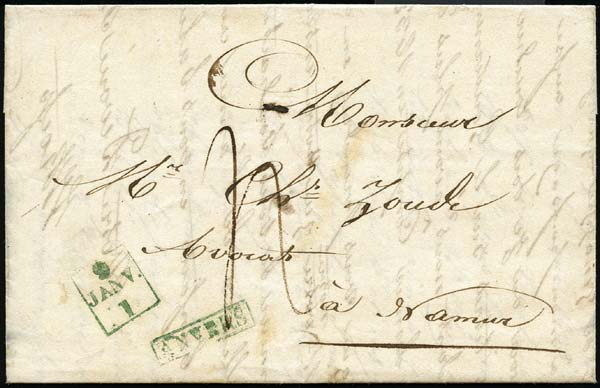 Monsieur
Mr. Chs. Zoude
Avocat
à Namur
9
JANV.
1
ANVERS